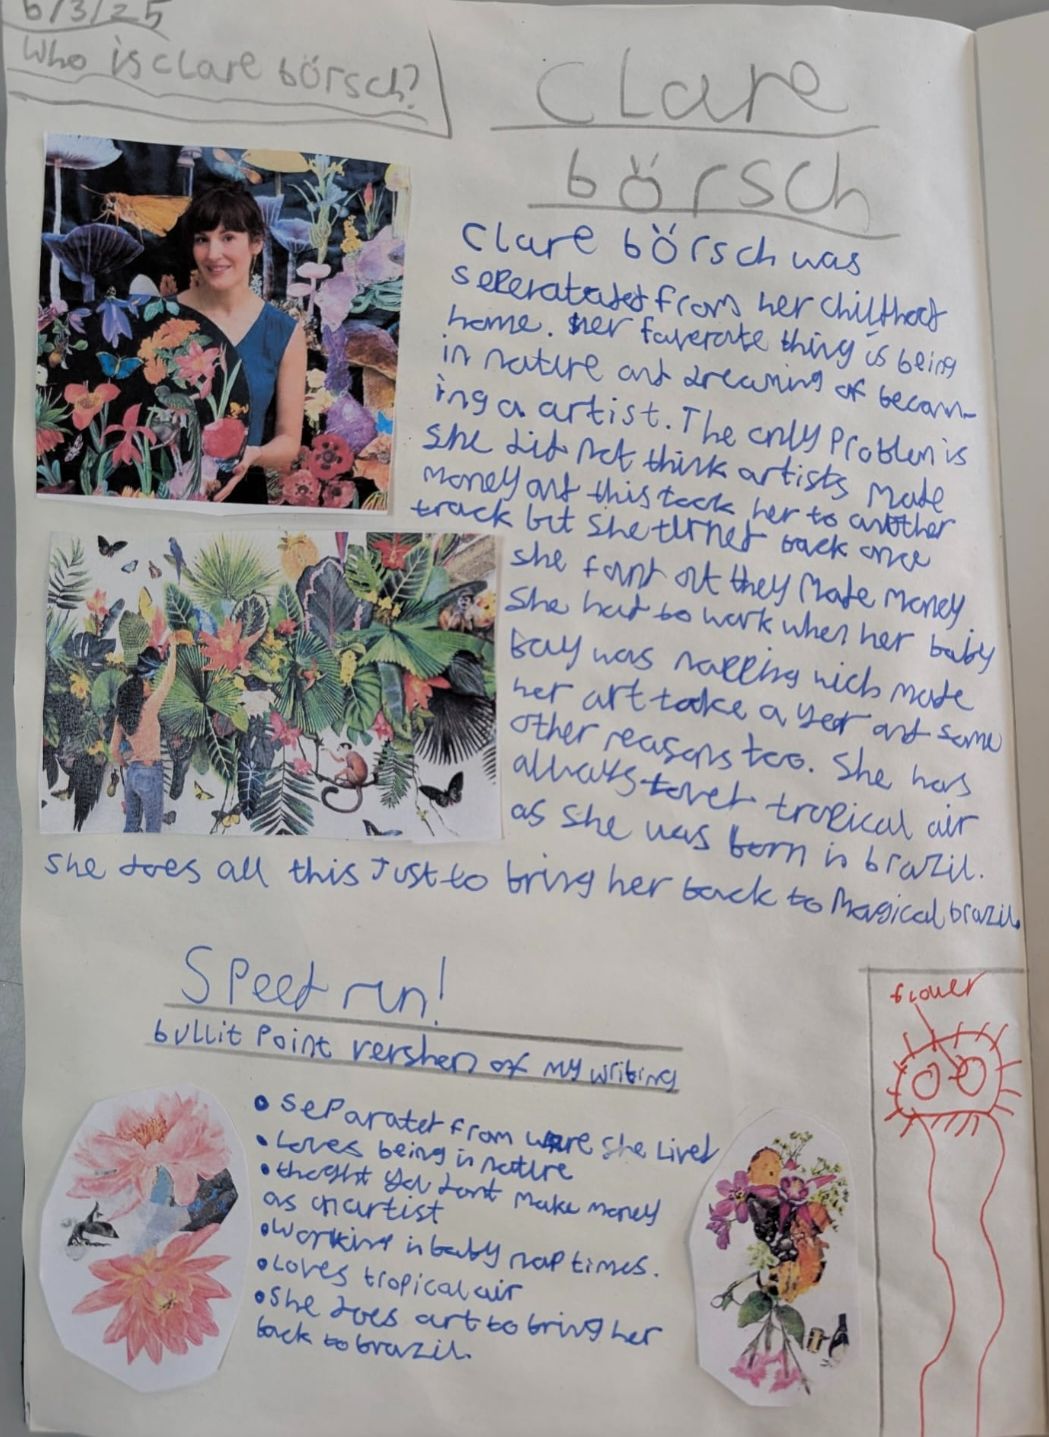 6/3/25
Who is clare börsch?
Clare
börsch
Clare börsch was
seperatated from her chilthood
home. her faverate thing is being
in nature and dreaming of becom-
ing a artist. The only problem is
she did not think artists made
money and this took her to another
track but she turned back once
she fount out they made money.
She had to work when her baby
bay was napping wich made
her art take a year and some
other reasons too. She has
always loved tropical air
as she was born in brazil.
she does all this just to bring her back to magical brazil.
Speed run!
bullit point vershen of my writing
• separated from were she lived
• Loves being in nature
• thought you dont make money
as an artist
• working in baby nap times.
• Loves tropical air
• She does art to bring her
back to brazil.
flower